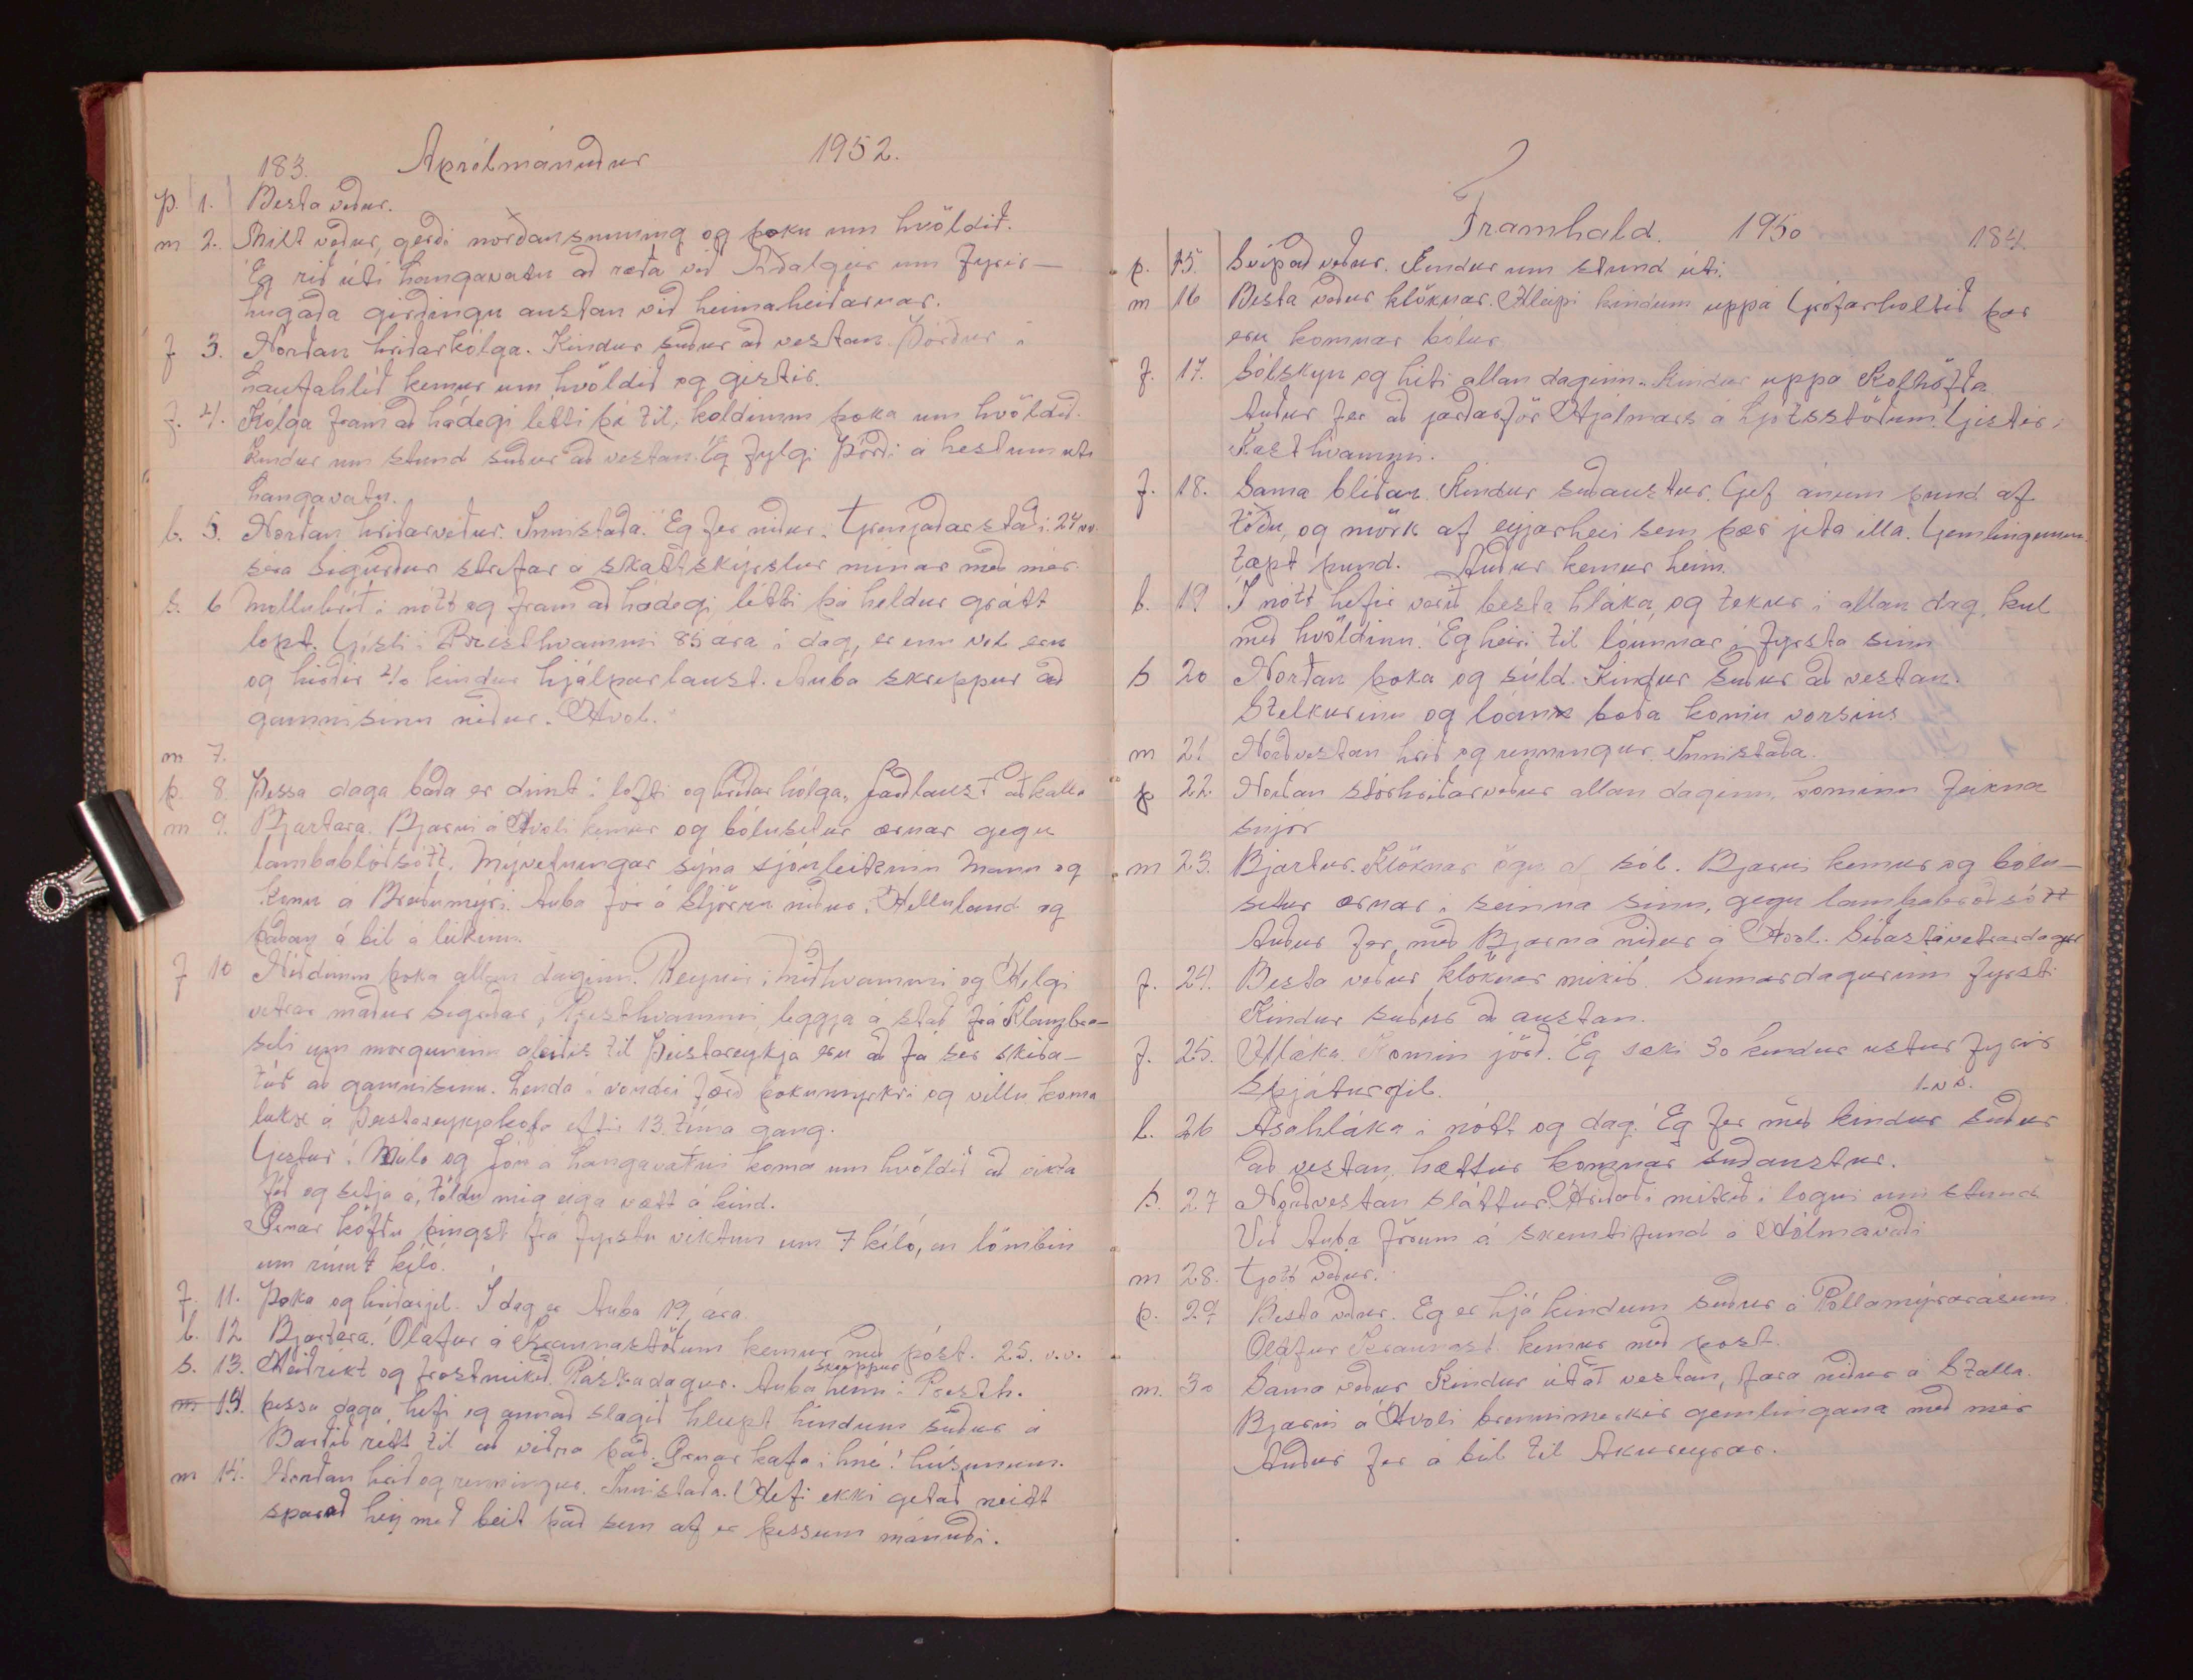 183. Aprílmánuður 1952.
þ. 1. Besta veður.
m 2. Milt veður, gerði norðansunning og þoku um kvöldið.
Ég rið útí Langavatn að ræða við Aðalgeir um fyrir-
hugaða girðingu austan við heimaheiðarnar.
f 3. Norðan hríðarkólga. Kindur suður að vestan. Þórður í
Laufahlíð kemur um kvöldið og gistir.
f. 4. Kólga fram að hádegi létti þá til, koldimm þoka um kvöldið.
Kindur um stund suður að vestan. Ég fylgi Þórði á hestum útí
Langavatn.
l. 5. Norðan hríðarveður. Innistaða. Ég fer niður í Grenjaðarstað i. 24 vv.
séra Sigurður skrifar á skattskýrslur mínar með mér.
s. 6 Molluhríð í nótt og fram að hádegi létti þá heldur grátt
lopt. Gísli í Presthvammi 85 ára í dag, er enn vel ern
og hirðir 40 kindur hjálparlaust. Auba skreppur að
gamnisinu niður í Hvol.
m 7.
þ. 8. Þessa daga báða er dimt í lofti og hríðar kólga, jarðlaust að kalla
m 9. Bjartara. Bjarni á Hvoli kemur og bólusetur ærnar gegn
lambablóðsótt. Mývetningar sýna sjónleikinn Mann og
konu á Breiðumýri. Auba fór á Stjörnu niður í Helluland og
þaðan á bíl á leikinn.
f 10 Niðdimm þoka allan daginn. Reynir í Miðhvammi og Helgi
vetrar maður Sigurðar í Presthvammi leggja á stað frá Klambra-
seli um morguninn áleiðis til Þeistareykja eru að fá sér skíða-
túr að gamnisinu. Lenda í vondri færð þokumyrkri og villu koma
loks á Þeistareykjakofa eftir 13. tíma gang.
Gestur í Múla og Jón á Langavatni koma um kvöldið að vikta
féð og setja á, töldu mig eiga vætt á kind.
Ærnar höfðu þingst frá fyrstu viktun um 7 kíló, en lömbin
um rúmt kíló.
f. 11. Þoka og hríðarjel. Í dag er Auba 19 ára
l. 12 Bjartara. Ólafur á Kraunastöðum kemur með póst. 25. v.v.
s. 13. Heiðríkt og frostmikið. Páskadagur. Auba skreppur heim í Presth.
m 14. þessa daga hefi eg annað slagið hleypt kindum suður á
Barðið rétt til að viðra það. Ærnar kafa í hné í húsunum.
m 14. Norðan hríð og renningur. Innistaða. Hefi ekki getað neitt
sparað hey með beit það sem af er þessum mánuði.
Framhald. 1950 184
þ. 15. Svipað veður. Kindur um stund úti.
m 16 Besta veður klöknar. Hleipi kindum uppá Grófarholtið þar
eru komnar bólur.
f. 17. Sólskyn og hiti allan daginn. Kindur uppá Kolhöfða
Auður fer að jarðarför Hjálmars á Ljótsstöðum. Gistir í
Kasthvammi.
f. 18. Sama blíðan. Kindur suðaustur. Gef ánum pund af
töðu, og mörk af eyjarheii sem þær jeta illa. Gemlingunum
tæpt pund. Auður kemur heim.
l. 19 Í nótt hefir verið besta hláka, og tekur í allan dag, kul
með kvöldinu. Ég heiri til lóunnar í fyrsta sinn
s 20 Norðan þoka og súld. Kindur suður að vestan.
Stelkurinn og lóan boða komu vorsins
m 21 Norðvestan hríð og renningur. Innistaða.
þ 22. Norðan stórhríðarveður allan daginn. kominn fákna
snjór
m 23. Bjartur. Klöknar ögn af sól. Bjarni kemur og bólu-
setur ærnar í seinna sinn, gegn lambablóðsótt
Auður fer með Bjarna niður á Hvol. Síðastivetrardagur
f. 24. Besta veður, klöknar mikið. Sumardagurinn fyrsti
Kindur suður að austan.
f. 25. Hláka. Komin jörð. Ég sæki 30 kindur ustur fyrir
Spjóturgil. 1. v s.
l. 26 Asahláka í nótt og dag. Ég fer með kindur suður
að vestan, hættur komnar suðaustur.
s. 27 Norðvestan sláttur. Hríðaði mikið í logni um stund
Við Auba förum á skemtifund á Hólmavaði
m 28. Gott veður.
þ. 29 Besta veður. Ég er hjá kindum suður á Pollamýrarásum
Ólafur Kraunast. kemur með póst.
m. 30 Sama veður. Kindur útað vestan, fara niður á Stalla.
Bjarni á Hvoli brennimerkir gemlingana með mér
Auður fer á bíl til Akureyrar.